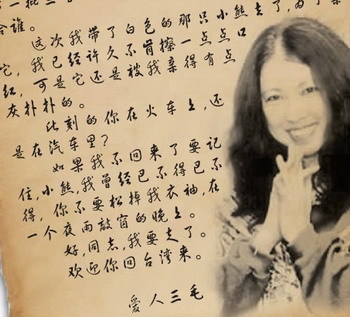 一批三
谁。
这次我带了白色的那只小熊去了，为了亲
它，我已经许久不肯擦一点点口
红，可是它还是被我亲得有点
灰扑扑的。
此刻的你在火车上，还
是在汽车里？
如果我不回来了要记
住，小熊，我曾经巴不得巴不
得，你不要松掉我衣袖，在
一个夜雨敲窗的晚上。
好，同志，我要走了。
欢迎你回台湾来。
爱人三毛